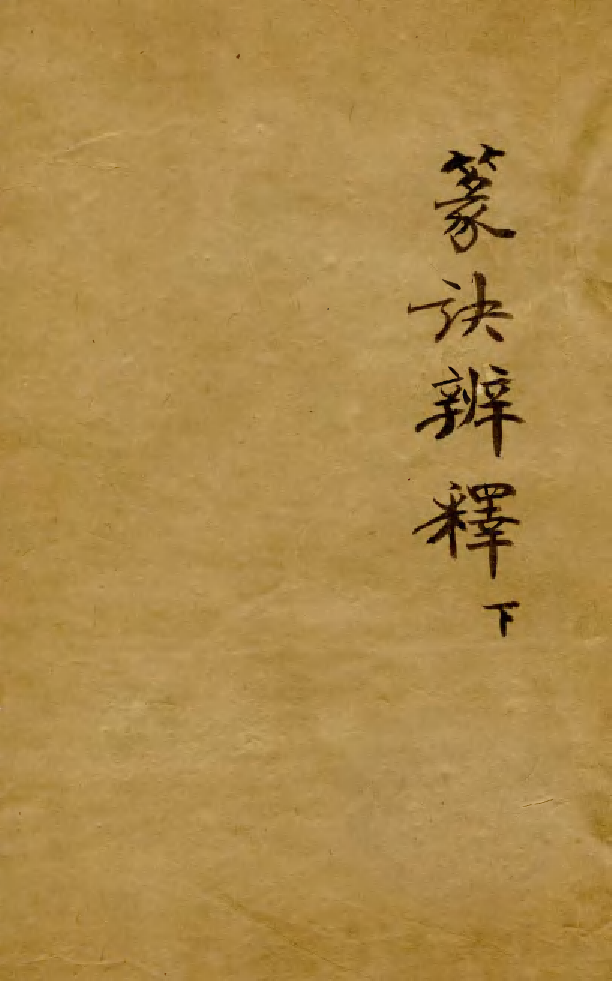 篆訣辨釋下